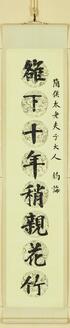 太老夫子大人 鈞誨
雒下十年稍親花竹